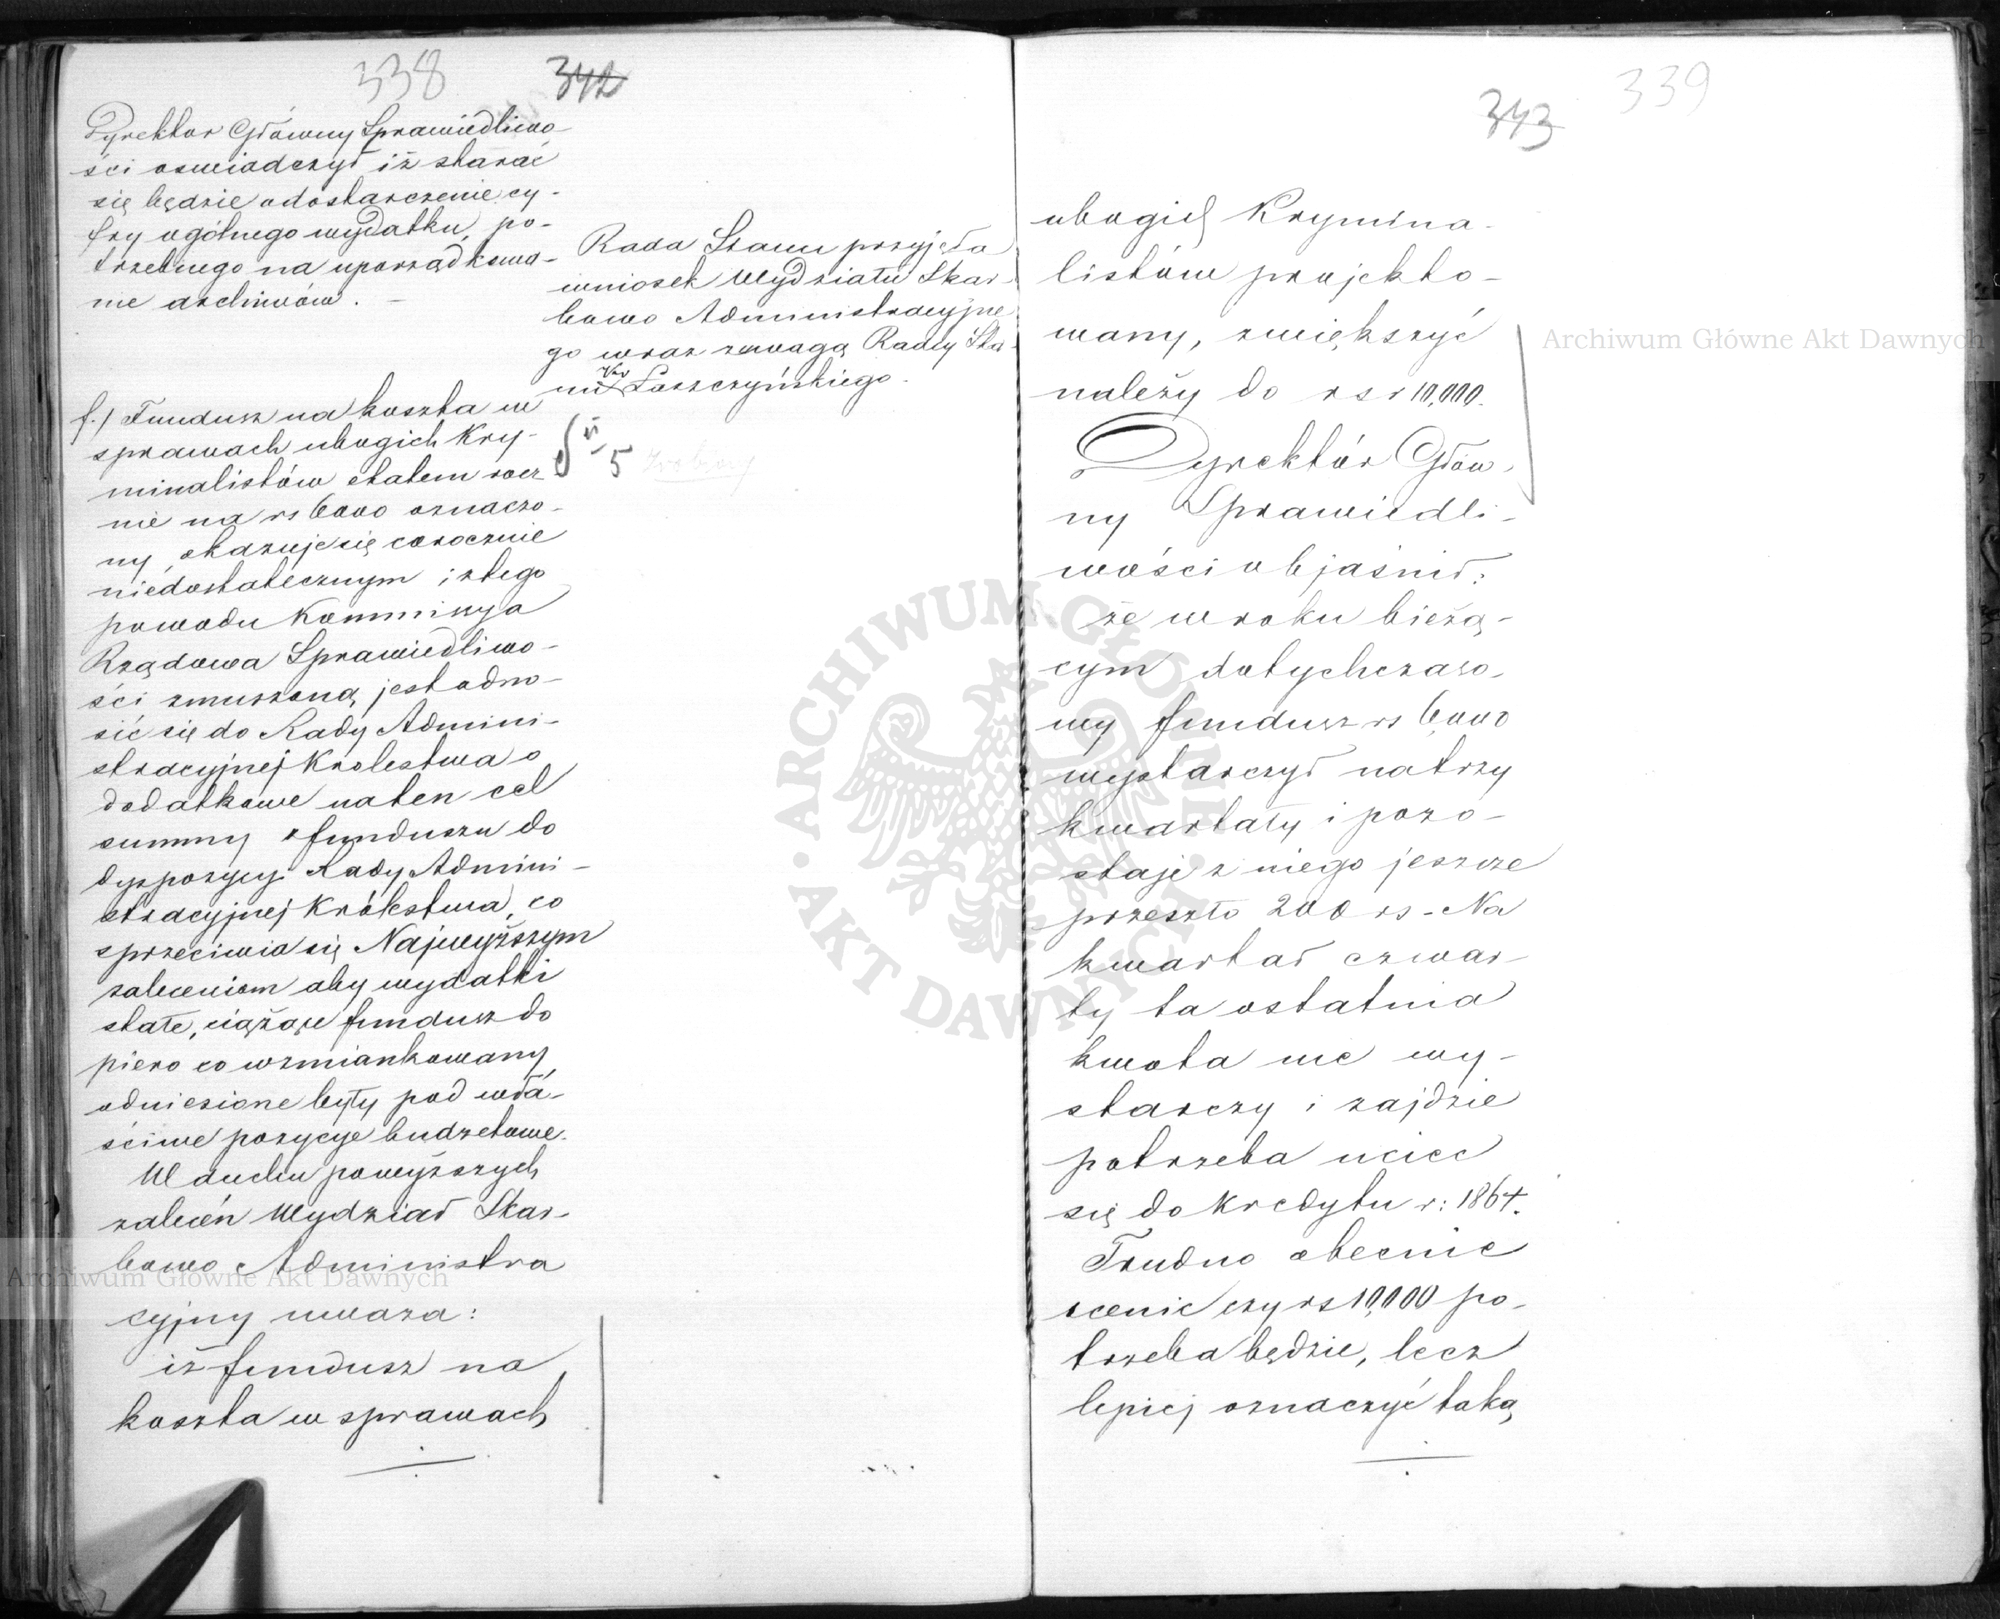 338 342
Dyrektor Główny Sprawiedliwo-
ści oswiadczył iż starać
się będzie o dostarczenie cy-
fry ogólnego wydatku, po-
trzebnego na uporządkowa-
nie archiwów. -
Rada Stanu przyjęła
wniosek Wydziału Skar-
bowo Administracyjne
go wraz z uwagą Radcy Sta-
nu Łaszczyńskiego.
f.) Fundusz na koszta w
sprawach ubogich Kry-
minalistów etatem rocz-
nie na rs 6000 oznaczo-
ny, okazuje się corocznie
niedostatecznym i z tego
powodu Kommissya
Rządowa Sprawiedliwo-
ści zmuszoną jest odno-
sić się do Rady Admini-
stracyjnej Krolestwa o
dodatkowe na ten cel
summy z funduszu do
dyspozycyi Rady Admini-
stracyjnej Królestwa, co
sprzeciwia się Najwyższym
zaleceniom aby wydatki
stałe, ciążące fundusz do
piero co wzmiankowany,
odniesione były pod wła-
ściwe pozycye budżetowe.
W duchu powyższych
zaleceń Wydział Skar-
bowo Administra
cyjny uważa:
iż fundusz na
koszta w sprawach
§ 5
339
343
ubogich Krymina-
listów projekto-
wany, zwiększyć
należy do rsr 10,000.
Dyrektór Głów-
ny Sprawiedli-
wości objaśnił:
że w roku bieżą-
cym dotychczaso-
wy fundusz rs 6,000
wystarczył na trzy
kwartały i pozo-
staje z niego jeszcze
przeszło 200 rs - Na
kwartał czwar-
ty ta ostatnia
kwota nie wy-
starczy i zajdzie
potrzeba uciec
się do kredytu r: 1864.
Trudno obecnie
ocenić czy rs 10,000 po-
trzeba będzie, lecz
lepiej oznaczyć taką
Archiwum Główne Akt Dawnych
Archiwum Główne Akt Dawnych
· ARCHIWUM GŁÓWNE · AKT DAWNYCH